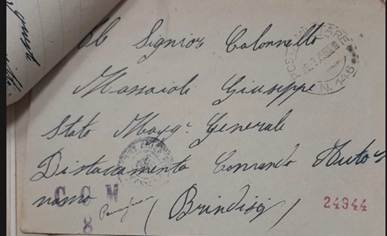 Al Signior Colonnello
Massaioli Giuseppe
Stato Magg. Generale
Distaccamento Comando Auto=
nomo (Brindisi)
POSTA MILITARE
C C M
8
24944